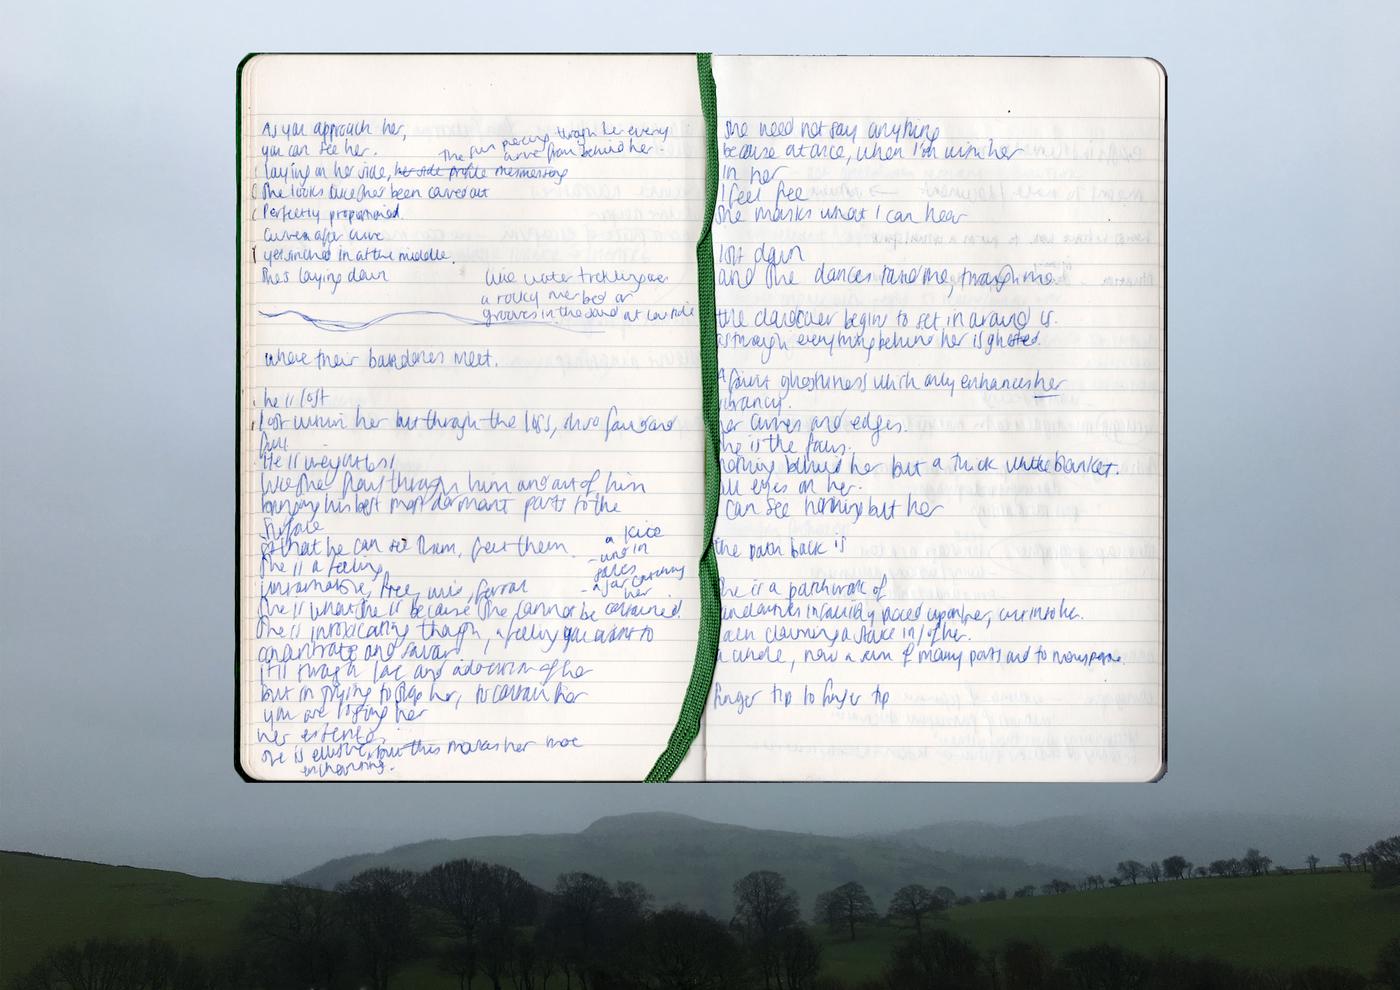 As you approach her,
you can see her.
The sun piercing through her every
curve from behind her.
laying on her side, her side profile mesmerising
She looks like she's been carved out
Perfectly proportioned.
Curve after curve
yet in at the middle.
She's laying down
like water trickling over
a rocky river bed or
grooves in the sand at low tide
where their boundaries meet.
he is lost
Lost within her but through the loss, also found and
full
He is weightless
like she flows through him and out of him
bringing his best most dormant parts to the
surface
so that he can see them, feel them.
She is a feeling
free, wild, feral
a kite
- wind in
sales
- a jar catching
her
She is what she is because she cannot be contained.
She is intoxicating though, a feeling you want to
and savour
It is through a love and adoration of her
but in trying to her, to contain her
you are losing her
her essence,
She is elusive, but this makes her more
enchanting.
She need not say anything
because at once, when I'm within her
in her
I feel free
She masks what I can hear
lost down
and she dances round me, through me
the begin to set in around us.
as though everything behind her is ghosted.
A faint ghostliness which only enhances her
vibrancy.
her curves and edges.
She is the focus.
nothing behind her but a thick white blanket.
all eyes on her.
I can see nothing but her
the path back is
She is a patchwork of
boundaries invisibly placed upon her, cut into her.
each claiming a stake in/of her.
a whole, now a sum of many parts and to many people.
finger tip to finger tip